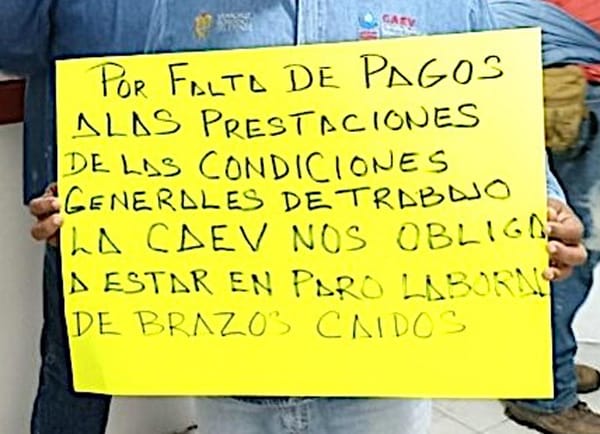 CAEV
POR FALTA DE PAGOS
ALAS PRESTACIONES
DE LAS CONDICIONES
GENERALES DE TRABAJO
LA CAEV NOS OBLIGA
A ESTAR EN PARO LABORAL
DE BRAZOS CAIDOS